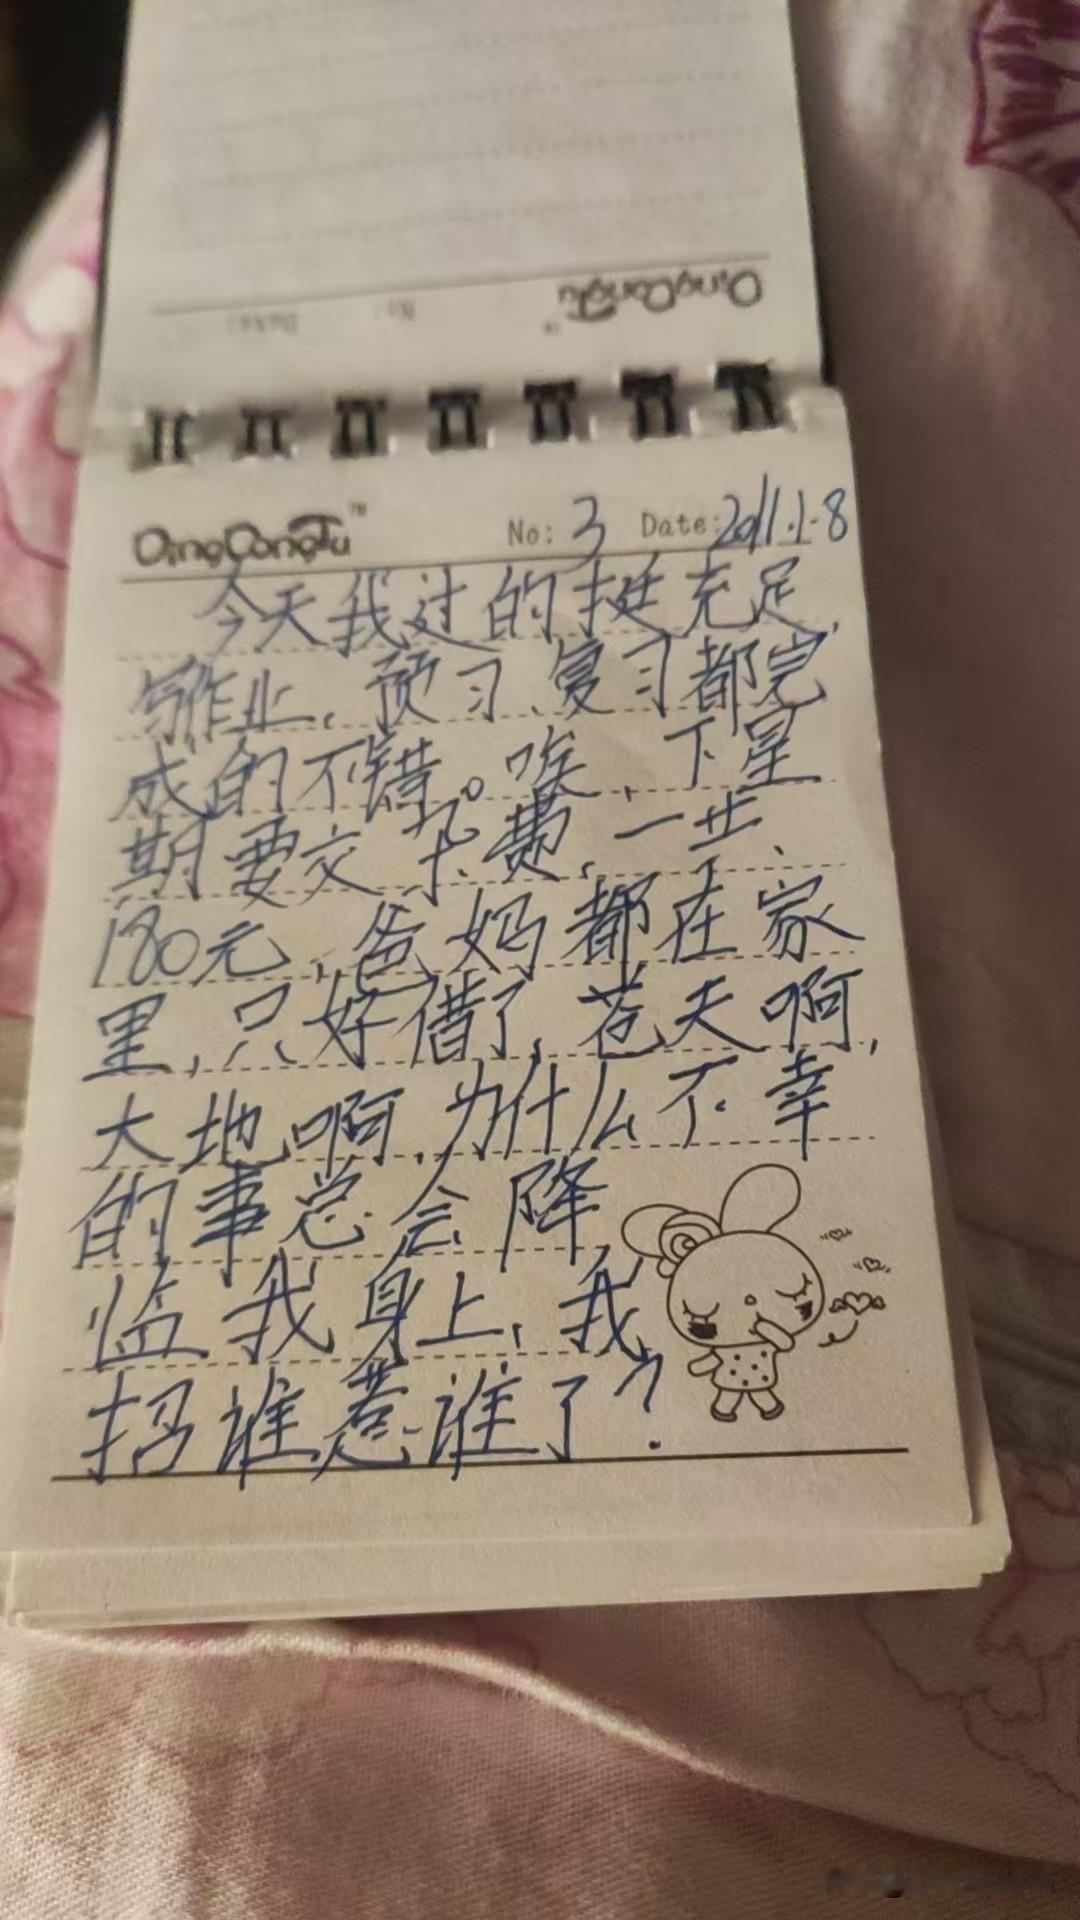 QingCongTu
No:
Date:
QingCongTu™ No: 3 Date: 2011.1.8
今天我过的挺充足,
写作业、预习、复习都完
成的不错。唉,下星
期要交 费,一共
180元,爸妈都在家
里,只好借了,苍天啊,
大地啊,为什么不幸
的事总会降
临我身上,我
招谁惹谁了?